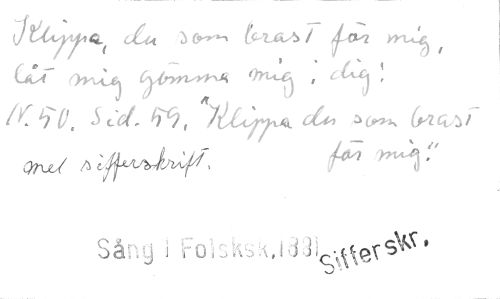 Klippa, du som brast för mig,
låt mig gömma mig i dig!
N. 50. Sid. 59. "Klippa du som brast
för mig."
mel sifferskrift.
Sång i Folsksk. 1881 Sifferskr.